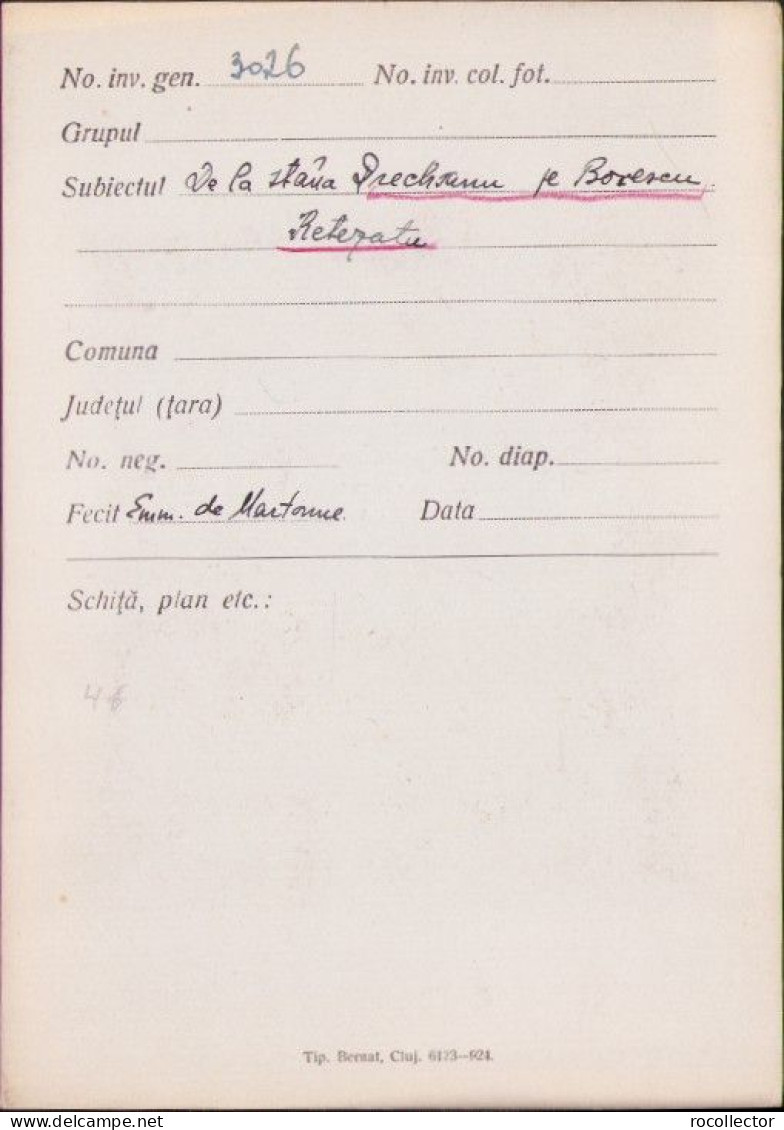 No. inv. gen. 3026 No. inv. col. fot.
Grupul
Subiectul De la stâna Drecheanu pe Borescu
Retezatu
Comuna
Județul (țara)
No. neg. No. diap.
Fecit Emm. de Martonne Data
Schiță, plan etc.:
Tip. Bernat, Cluj. 6173—924.
delcampe.net
rocollector